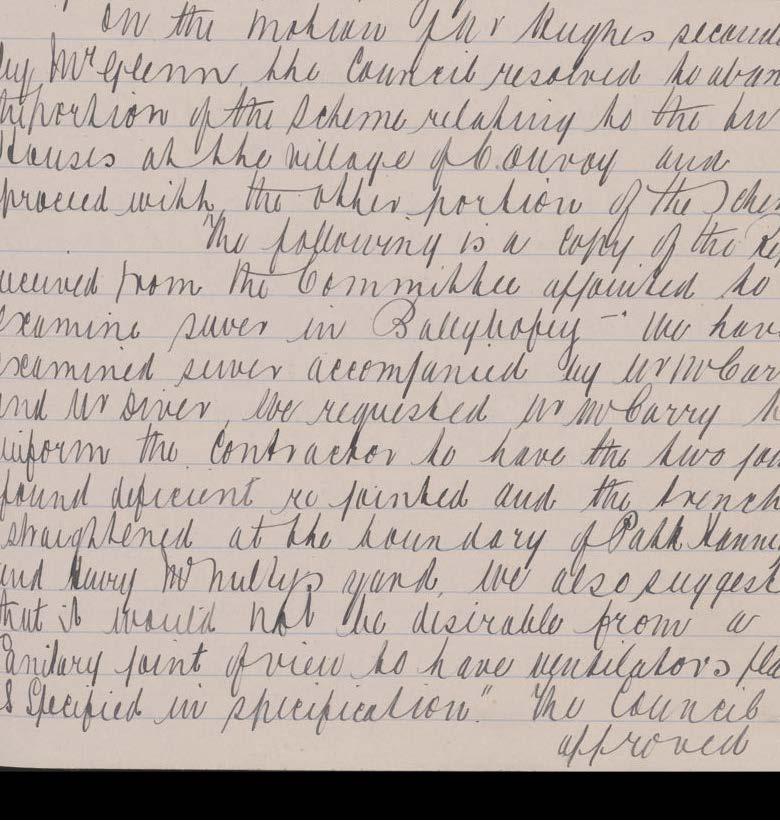 On the motion of Mr Hughes second
by Mr Glenn the Council resolved to aban
portion of the Scheme relating to the
Houses at the village of Convoy and
proceed with the other portion of the Schem
The following is a copy of the Re
received from the Committee appointed to
examine sewer in Ballybofey - "We hav
examined sewer accompanied by Mr McCar
and Mr Diver, We requested Mr McCarry t
inform the Contractor to have the two joi
found deficient re jointed and the trench
straightened at the boundary of Patk Hanni
and Harry McNultys yard, We also suggest
that it would not be desirable from a
Sanitary point of view to have ventilators pla
as Specified in specification." The Council
approved